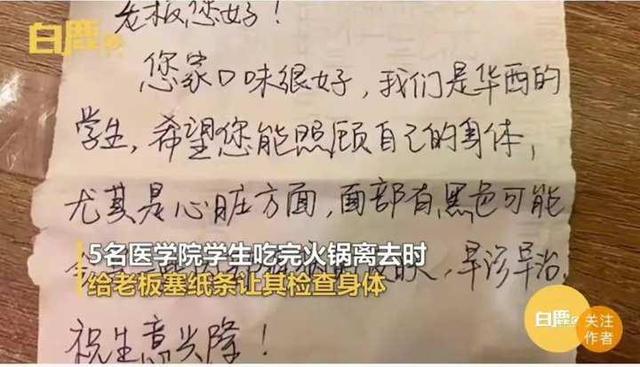 白鹿
老板您好！
您家口味很好，我们是华西的
学生，希望您能照顾自己的身体，
尤其是心脏方面，面部有黑色可能
5名医学院学生吃完火锅离去时
早诊早治，
给老板塞纸条让其检查身体
祝生意兴隆！
白鹿
关注
作者